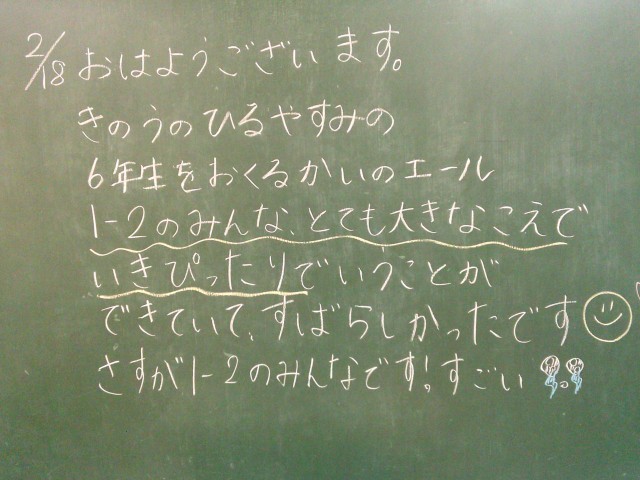 2/18 おはようございます。
きのうのひるやすみの
6年生をおくるかいのエール
1-2のみんな、とても大きなこえで
いきぴったりでいうことが
できていて、すばらしかったです
さすが1-2のみんなです!すごい!!